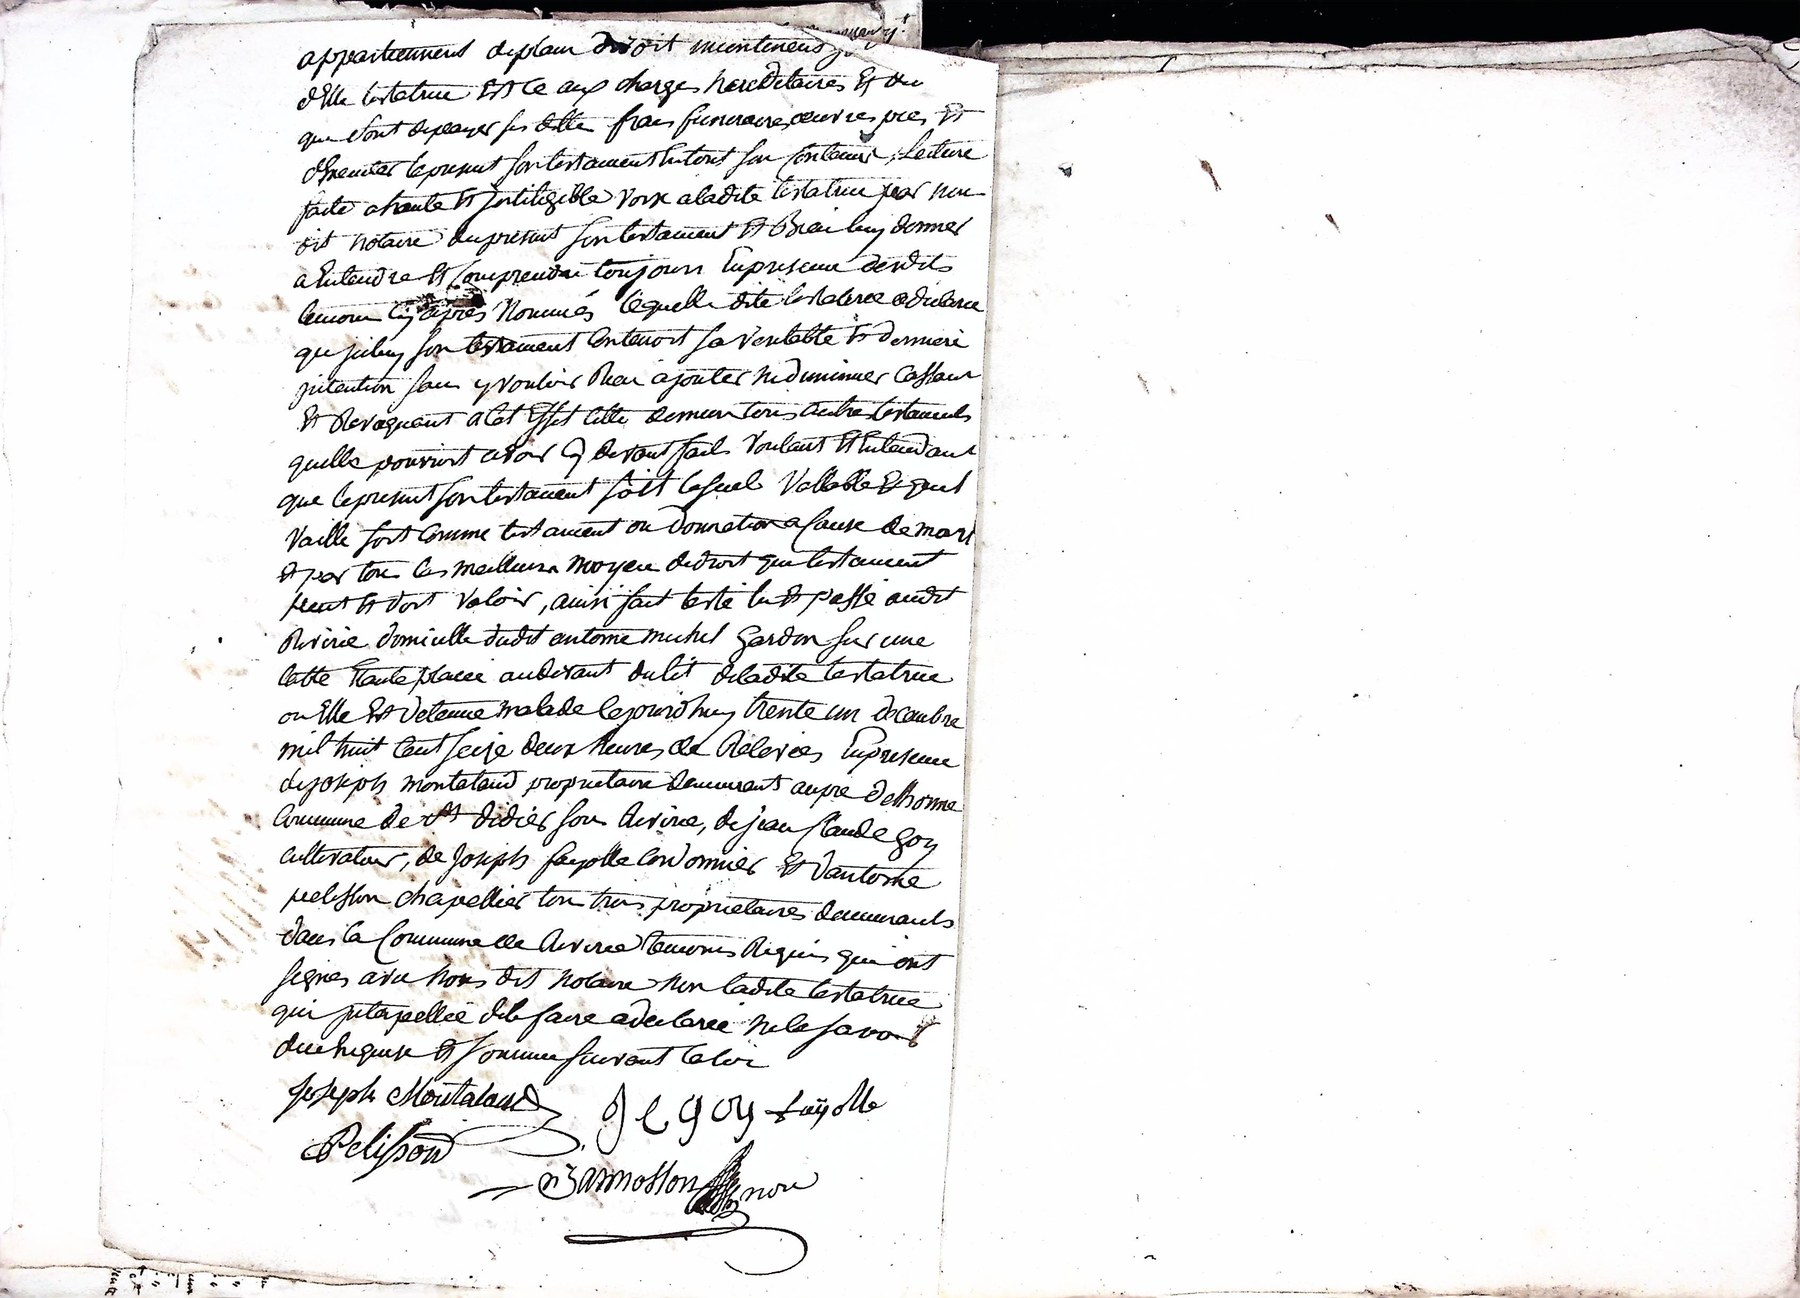 appartiennent deplain droit montenens
d'Elle testatrice Et ce aux charges hereditaires Et du
que dont depayer ses dettes frais funeraires, œuvres pies Et
d'Executer lepresent son testament Entout son Contenu, Lecture
faite a haute Et Inteligible voix aladite testatrice par nou
dit notaire dupresent son testament Et Bien luy donner
a Entendre Et Comprendre toujours Enpresence desdits
temoins Cy apres Nommés laquelle dite testatrice adeclaree
que Iceluy son testament Contenoit sa veritable Et derniere
intention sans y vouloir Rien ajouter nediminuer Cassant
Et Revoquant a Cet Effet tous autres testaments
quelle pourroit avoir Cy devant faits voulant Et Entendant
que lepresent son testament soit leseul Vallable Et quil
Vaille soit Comme testament ou donnation a Cause de mort
Et par tous les meilleurs moyens dedroit que testament
peut Et doit valoir, ainsi fait testé lu Et passé audit
Riverie domicille dudit antoine michel gardon sur une
table Etante placée audevant dulit deladite testatrice
ou Elle Est detenue malade lejourdhuy trente un decembre
mil huit Cent seize deux heures de Relevées Enpresence
dejoseph montaland propriétaire demeurant aupre delhorme
Commune de st didier sous Riverie, dejean Claude goy
Cultivateur, de Joseph fayolle Cordonnier Et dantoine
pelisson chapellier tous trois propriétaires demeurants
dans la Commune de Riverie temoins Requis qui ont
signés avec nous dit notaire non ladite testatrice
qui interpellée dele faire adeclaree nele savoir
duement Requise Et sommée suivant laloi
Joseph Montaland J C goy fayolle
Pelisson
nore